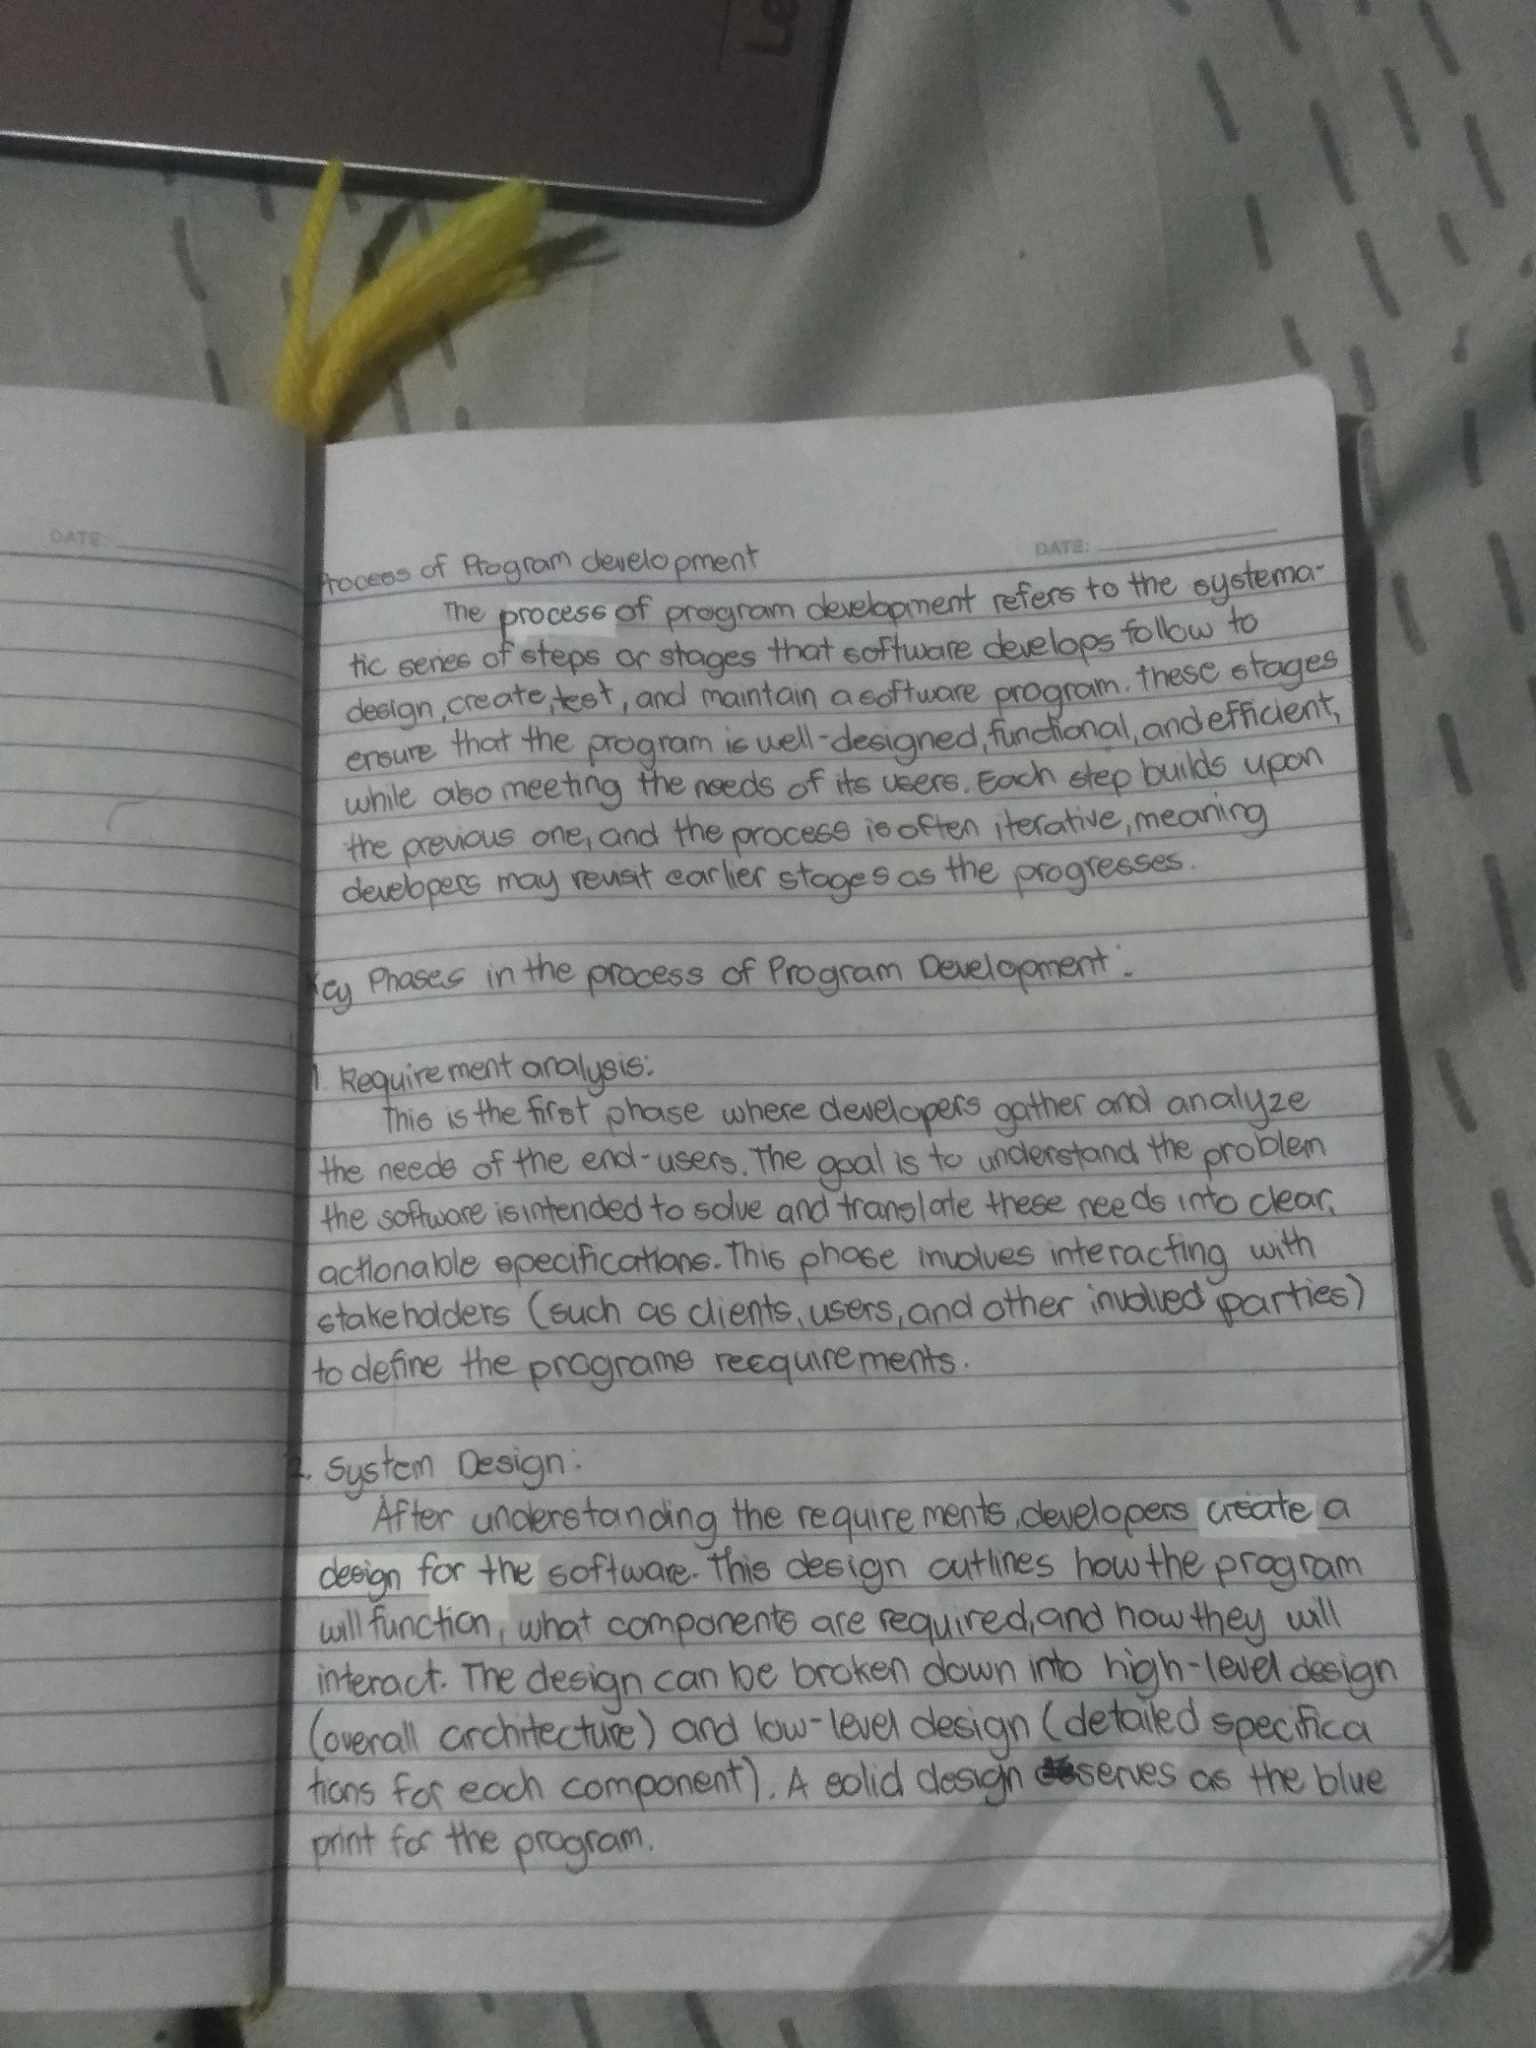 Le
DATE:
DATE:
Process of Program development
The process of program development refers to the systema-
tic series of steps or stages that software develops follow to
design, create, test, and maintain a software program. These stages
ensure that the program is well-designed, functional, and efficient,
while also meeting the needs of its users. Each step builds upon
the previous one, and the process is often iterative, meaning
developers may revisit earlier stages as the progresses.
Key Phases in the process of Program Development:
1. Requirement analysis:
This is the first phase where developers gather and analyze
the needs of the end-users. The goal is to understand the problem
the software is intended to solve and translate these needs into clear,
actionable specifications. This phase involves interacting with
stakeholders (such as clients, users, and other involved parties)
to define the programs recquirements.
2. System Design:
After understanding the requirements, developers create a
design for the software. This design outlines how the program
will function, what components are required, and how they will
interact. The design can be broken down into high-level design
(overall architecture) and low-level design (detailed specifica
tions for each component). A solid design serves as the blue
print for the program.